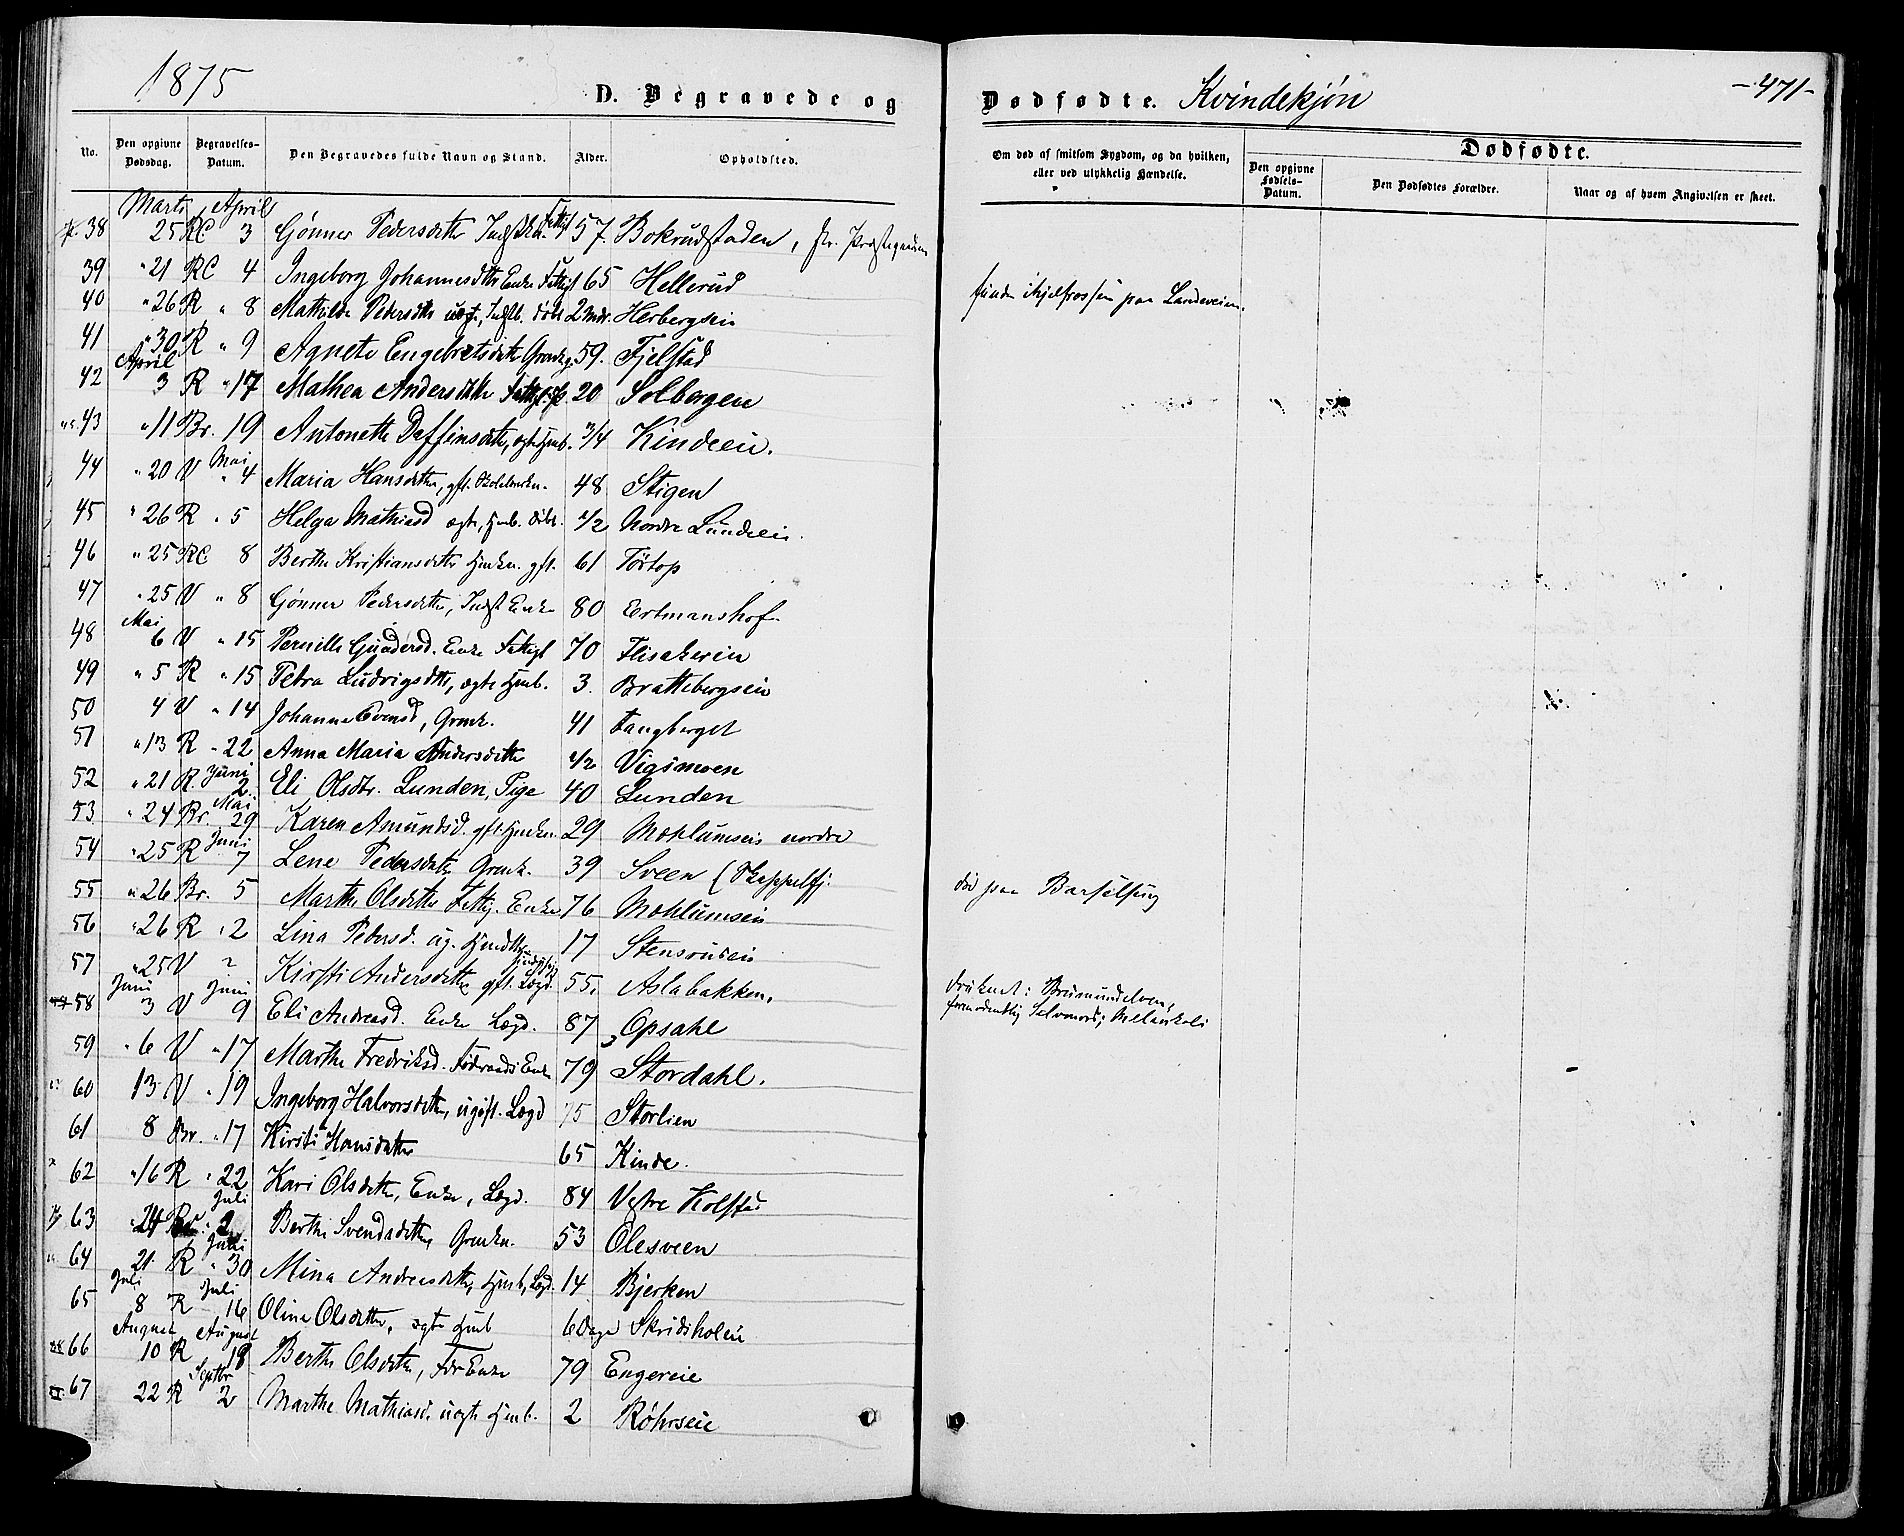 1875
D. Begravede og
Dødfødte. Kvindekjøn
-471-
No.
Den opgivne Dødsdag.
Begravelses-Datum.
Den Begravedes fulde Navn og Stand.
Alder.
Opholdsted.
Om død af smitsom Sygdom, og da hvilken, eller ved ulykkelig Hændelse.
Dødfødte.
Den opgivne Fødsels-Datum.
Den Dødfødtes Forældre.
Naar og af hvem Angivelsen er skeet.
Marts April
38 25 RC 3 Gønner Pedersdatter 57. Bokrudstaden,
39 " 21 RC 4 Ingeborg Johannesdtr Enke Fattigl 65 Hellerud funden ihjelfrossen paa Landeveien.
40 " 26 R " 8 Mathilde Pedersdtr uægte, 2 Mdr. Herbergseie
41 " 30 R " 9 Agnete Engebretsdtr 59. Fjelstad
April
42 3 R " 17 Mathea Andersdtr 20 Solbergen
43 " 11 Br. 19 Antonette Daffinsdtr, ægte Hmb. 3/4 Kindeeie.
Mai
44 " 20 V " 4 Maria Hansdatter, gft. 48 Stigen
45 " 26 R " 5 Helga Mathiasd ægte, Hmb. 1/2 Nordre Lundeeie.
46 " 25 RC 8 Berthe Kristiansdtr gft. 61 Tørtop
47 " 25 V " 8 Gønner Pedersdtr, Indst Enke 80 Ertmanshof
Mai
48 6 V " 15 Pernille Gundersd. Enke Fattigl 70 Flisakerie
49 " 5 R " 15 Petra Ludvigsdtr, ægte Hmb. 3. Brattebergseie
50 4 V " 14 Johanne Evensd, Grmk. 41 Fangberget
51 " 13 R " 22 Anna Maria Andersdtr 1/2 Vigsmoen
Juni
52 " 21 R. 2 Eli Olsdtr. Lunden, Pige 40 Lunden
Mai
53 " 24 Br. 29 Karen Amundsd. gft. 29 Mohlumseie nordre
Juni
54 " 25 R 7 Lene Pedersdtr Grmk. 39 Sveen (Skappelfj. død paa Barselseng
55 " 26 Br. 5 Marthe Olsdtr Fattigl. Enke 76 Mohlumseie
56 " 26 R " 2 Lina Pedersd. ug. 17 Stensrudeie
57 " 25 V 2 Kirsti Andersdtr gft. Lægd 55. Aslabakken. druknet i Brumundelven,
Juni Juni
58 3 V 9 Eli Andreasd. Enke Lægd. 87 Opsahl formodentlig Selvmord; Melankoli
59 " 6 V " 17 Marthe Fredriksd. Føderaads Enke 79 Stordahl.
60 13 V " 19 Ingeborg Halvorsdtr, ugift. Lægd 75 Storlien
61 8 Br. " 17 Kirsti Hansdatter 65 Kinde.
62 " 16 R " 22 Kari Olsdtr, Enke, Lægd. 84 Vestre Kolstad
Juli
63 24 2 Berthe Svendsdtr, Grmkn. 53 Olesveen
64 21 R " 30 Mina Andreasdtr, Hmb, Lægd. 14 Bjerken
Juli Juli
65 8 R 16 Oline Olsdtr, ægte Hmb 6 Dage Skridsholeie
August August
66 10 R 18 Berthe Olsdtr, Før Enke 79 Engereie
Septbr
67 22 R 2 Marthe Mathiasd. uægte Hmb. 2 Røhrseie